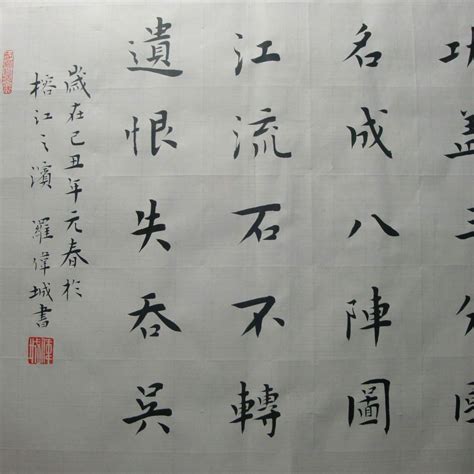 功蓋三分國
名成八陣圖
江流石不轉
遺恨失吞吳
歲在己丑年元春於
榕江之濱 羅偉城書